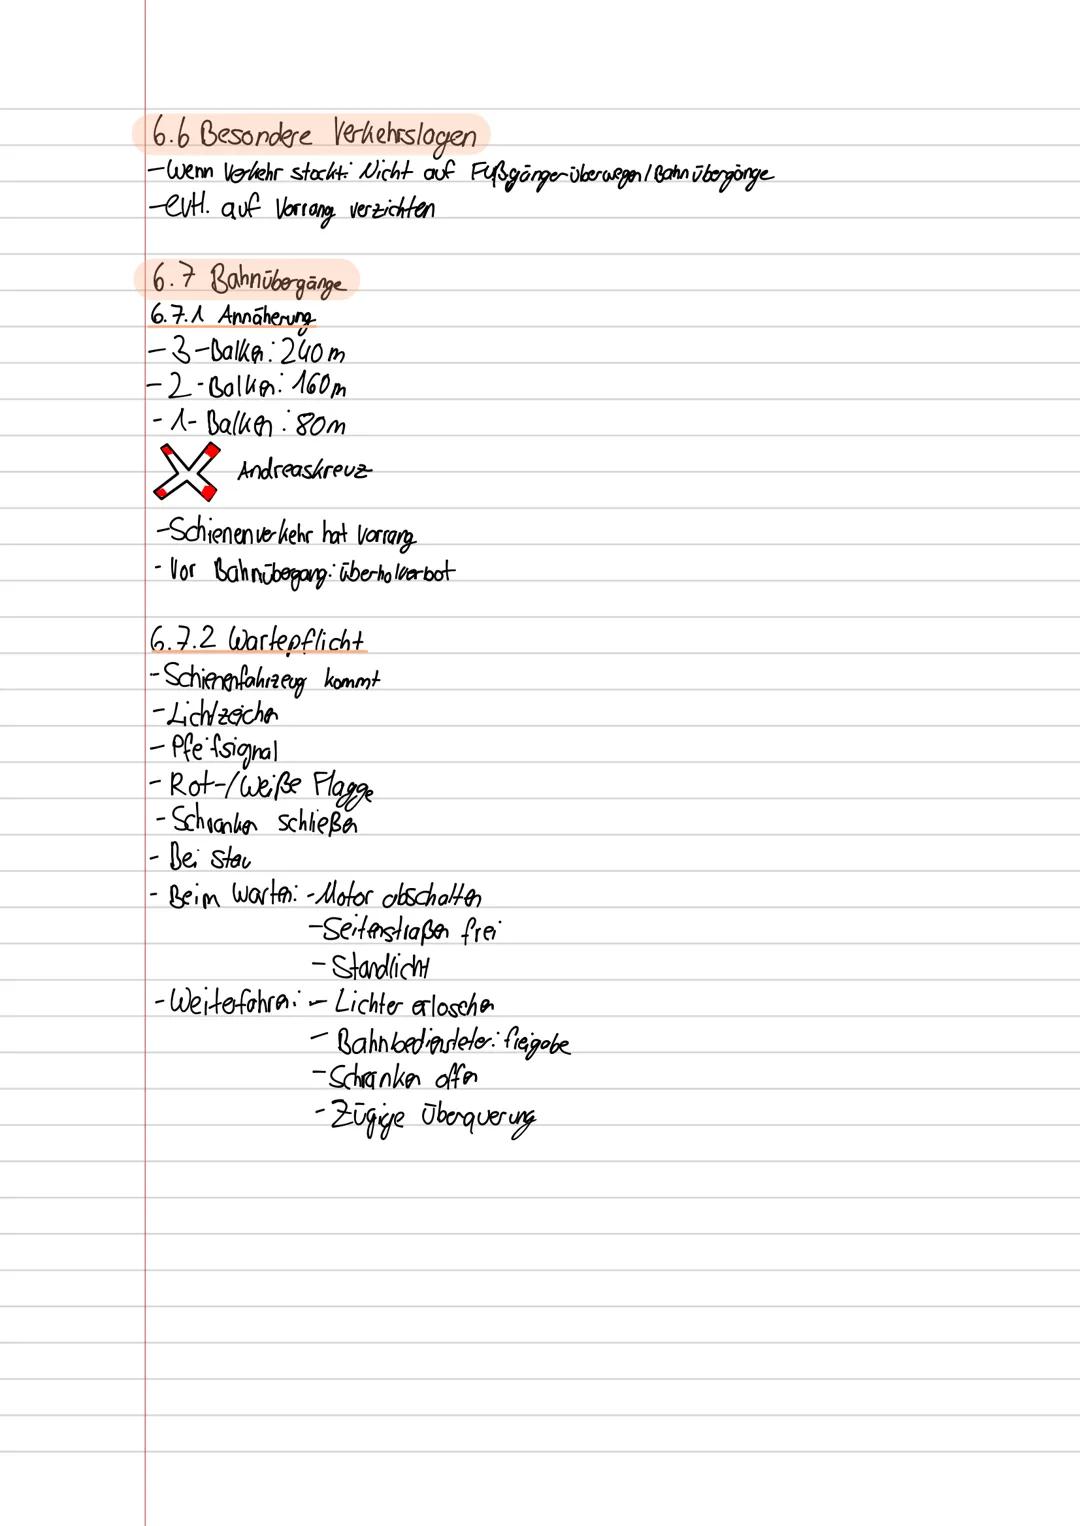 6.6 Besondere Verkehrslagen
-Wenn Verkehr stockt: Nicht auf Fußgängerüberwegen/Bahnübergänge
-evtl. auf Vorrang verzichten
6.7 Bahnübergänge
6.7.1 Annäherung
-3-Balken: 240m
-2-Balken: 160m
-1-Balken: 80m
Andreaskreuz
-Schienenverkehr hat Vorrang
-Vor Bahnübergang: Überholverbot
6.7.2 Wartepflicht
-Schienenfahrzeug kommt
-Lichtzeichen
-Pfeifsignal
-Rot-/Weiße Flagge
-Schranken schließen
-Bei Stau
-Beim Warten: -Motor abschalten
-Seitenstraßen frei
-Standlicht
-Weiterfahren: -Lichter erloschen
-Bahnbediensteter: freigabe
-Schranken offen
-Zügige Überquerung